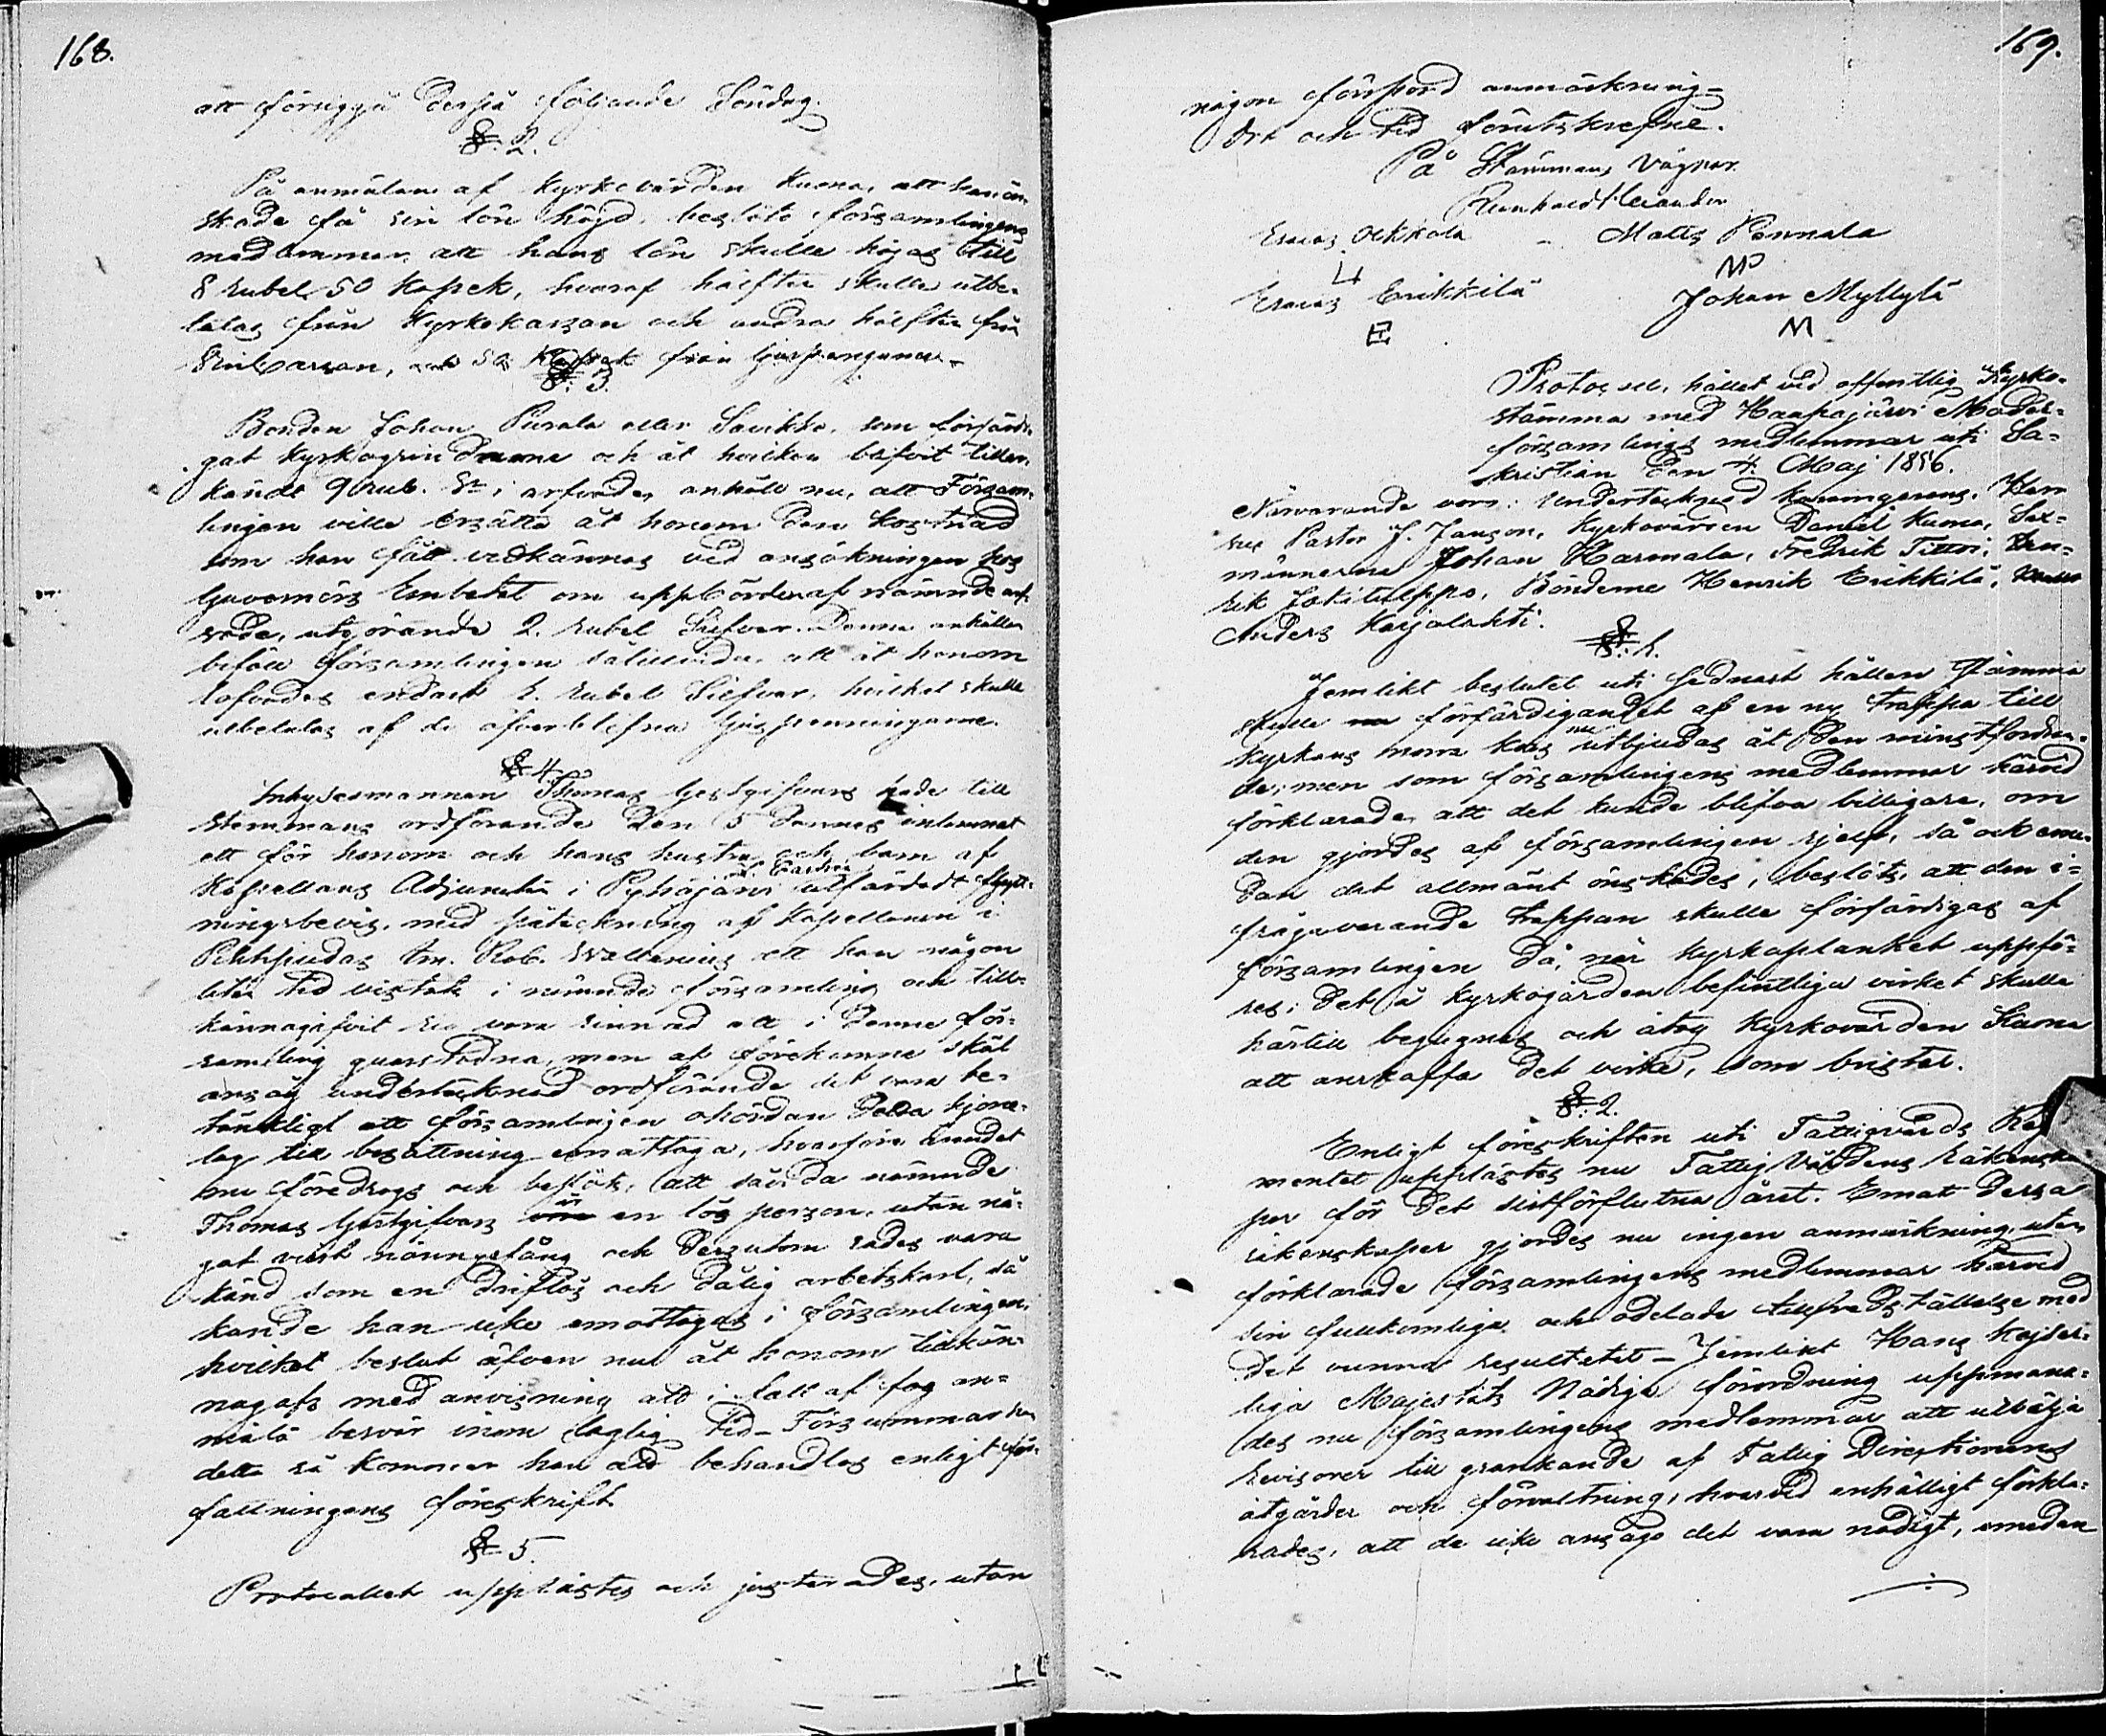 168.
att försiggå derpå följande Söndag.
§. 2.
På anmälan af Kyrkovärden Kuona, att han ön-
skade få sin lön höjd, beslöto församlingens
medlemmar att hans lön skulle höjas till
8 Rubel 50 Kopek, hvaraf hälften skulle utbe-
talas från Kyrkokassan och andra hälften från
50 Kopek från
§. 3.
Bonden Johan Pusala eller Savikko, som förfärdi-
gat kyrkogrindarne och åt hvilken blifvit tiller-
kändt 9 rub. Sr i arfvode, anhöll nu, att Församl-
lingen ville ersätta åt honom den kostnad
som han fått vidkännas vid ansökningen hos
Guvernörs Embetet om uppbörden af nämnde arf-
vode, utgörande 2. rubel Silfver. Denna anhållan
biföll församlingen sålunda, att åt honom
lofvades endast 1. rubel Silfver, hvilket skulle
utbetalas af de öfverblifna ljuspenningarne.
§ 4.
Inhysesmannen Thomas Gestgifvars hade till
stämmans ordförande den 5 dennes inlemnat
ett för honom och hans hustru och barn af
Kapellans Adjuncten i Pyhäjärvi utfärdadt flytt-
ningsbevis, med påteckning af Kapellanen i
Pihtipudas att han någon
liten tid vistats i nämnde församling och till-
kännagifvit sig vara sinnad att i denne för-
samling qvarstadna, men af förekomne skäl
ansåg undertecknad ordförande det vara be-
tänkligt att församlingen ohördan detta hjone-
lag till besittning emottaga, hvarföre ärendet
nu föredrogs och beslöts, att såvida nämnde
Thomas Gestgifvars är en lös person, utan nå-
got visst näringsfång och dessutom sades vara
känd som en driflös och dålig arbetskarl, så
kunde han icke emottagas i församlingen,
hvilket beslut äfven nu åt honom tillkän-
nagafs med anvisning att i fall af fog an-
mäla besvär inom laglig tid – Försummas
detta så kommer han att behandlas enligt för-
fattningens föreskrift
§ 5.
Protocollet upplästes och justerades, utan
169.
någon försport anmärkning –
Ort och tid förutskrefne.
På Stämmans vägnar.
Esaias Ockkola – Matts Pennala
Esaias Erikkilä Johan Myllylä
M
Protocoll, hållet vid offentlig Kyrko-
stämma med Haapajärvi Moder-
församlings medlemmar uti Sa-
kristian den 4. Maj 1856.
Närvarande voro: undertecknad Herr
Pastor J. Janson, Kyrkovärden Daniel Kuona, Sex-
männerna Johan Harmala, Fredrik Tittoi, Hen-
rik Jokitulppo, Bönderne Henrik Erikkilä,
Anders Karjalahti.
§. 1.
Jemlikt beslutet uti sednast hållen Stämma
skulle förfärdigandet af en ny trappa till
kyrkans norra kors nu utbjudas åt den minstfordran-
de; men som församlingens medlemmar härvid
förklarade, att det kunde blifva billigare, om
den gjordes af församlingen sjelf, så och eme-
dan det allmänt önskades, beslöts, att den i-
frågavarande trappan skulle förfärdigas af
församlingen då, när kyrkoplanket uppfö-
res; det å kyrkogården befintliga virket skulle
härtill begagnas och åtog Kyrkovärden Kuona
att anskaffa det virke, som brister.
§. 2.
Enligt föreskriften uti Fattigvårds
mentet upplästes nu Fattig Vårdens räkenska-
per för det sistförflutna året. Emot dessa
räkenskaper gjordes nu ingen anmärkning, utan
förklarade församlingens medlemmar härvid
sin fullkomliga och odelade tillfredsställelse med
det vunna resultatet – Jemlikt Hans Kejser-
liga Majestäts Nådiga förordning uppmana-
des nu församlingens medlemmar att utvälja
revisorer till granskande af Fattig Directionens
åtgärder och förvaltning, hvarvid enhälligt förkla-
rades, att de icke ansågo det vara nödigt, emedan